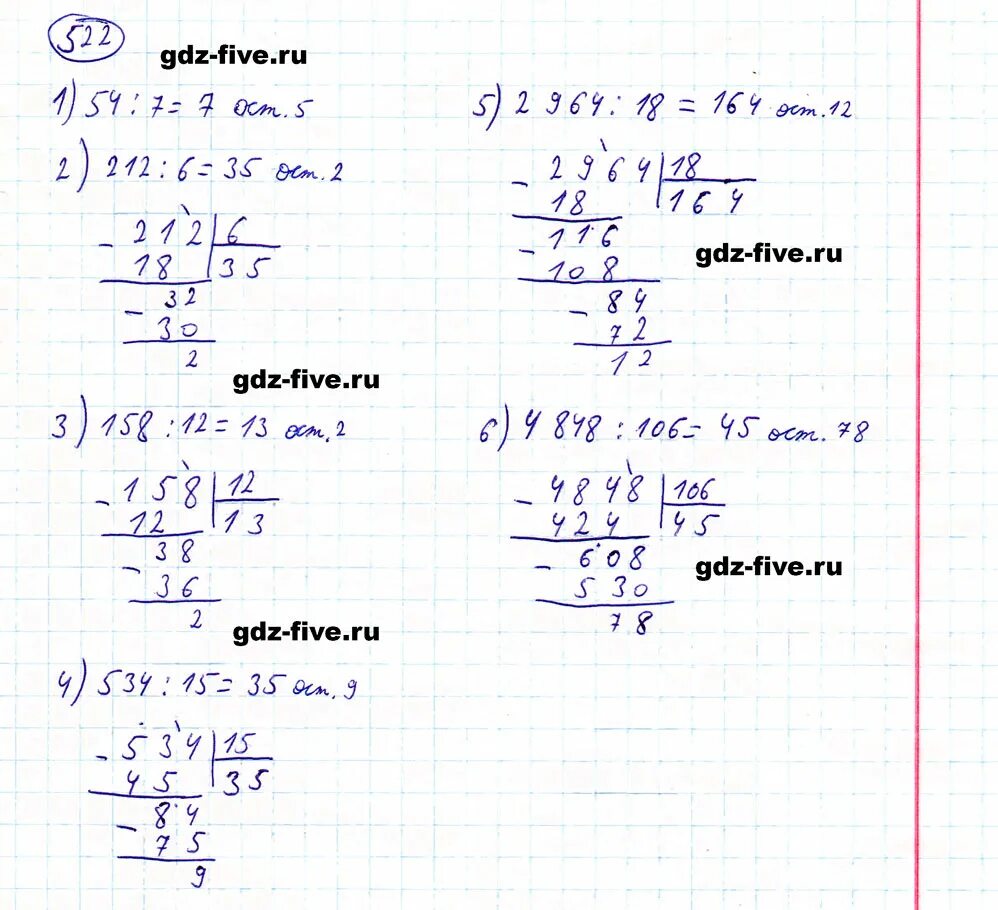 522
gdz-five.ru
1) 54 : 7 = 7 ост. 5
2) 212 : 6 = 35 ост. 2
- 212 6
18 35
- 32
30
2
gdz-five.ru
3) 158 : 12 = 13 ост. 2
- 158 12
12 13
- 38
36
2
gdz-five.ru
4) 534 : 15 = 35 ост. 9
- 534 15
45 35
- 84
75
9
5) 2 964 : 18 = 164 ост. 12
- 2964 18
18 164
- 116
108
gdz-five.ru
- 84
72
12
6) 4 848 : 106 = 45 ост. 78
- 4848 106
424 45
- 608
530
gdz-five.ru
78